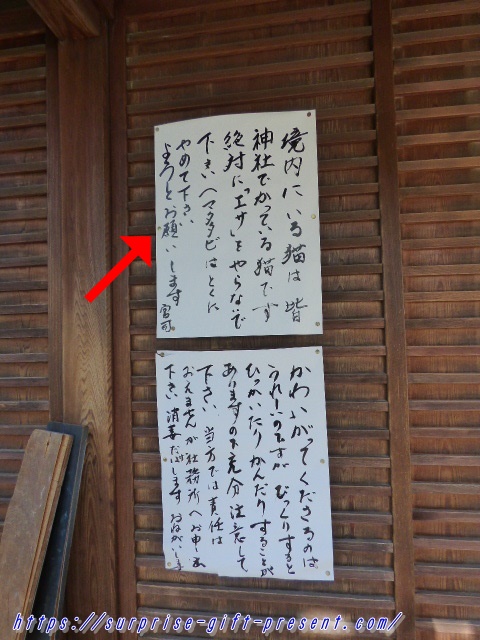 境内にいる猫は皆
神社でかっている猫です
絶対に「エサ」をやらないで
下さい(マタタビはとくに
やめて下さい
よろしとお願いします 宮司
かわいがってくださるのは
うれしいのですが びっくりすると
ひっかいたりかんだりすることが
ありますので充分注意して
下さい 当方では責任は
おえませんが社務所へお申し出
下さい 消毒だけはします おねがいします
https://surprise-gift-present.com/